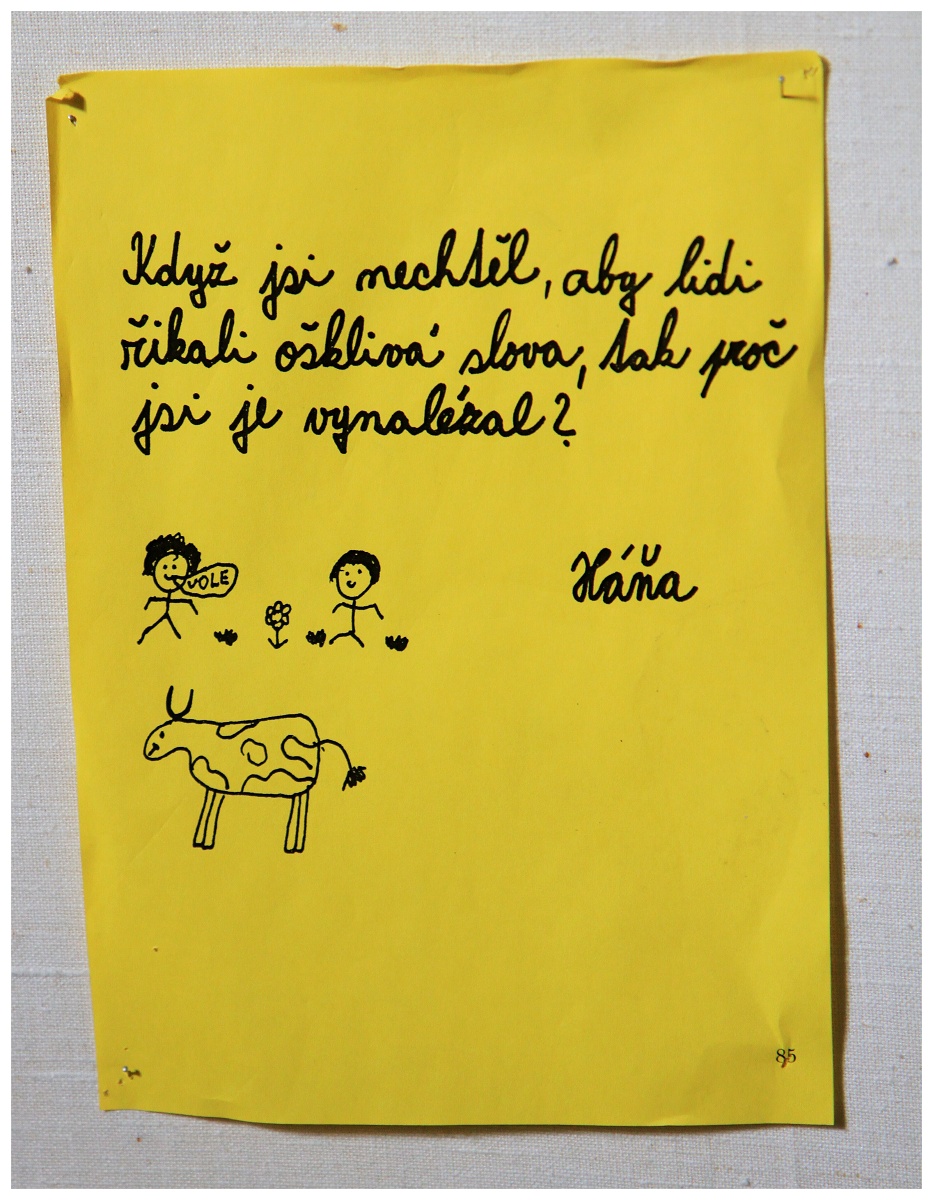 Když jsi nechtěl, aby lidi
řikali ošklivá slova, tak proč
jsi je vynalézal?
VOLE
Háňa
85